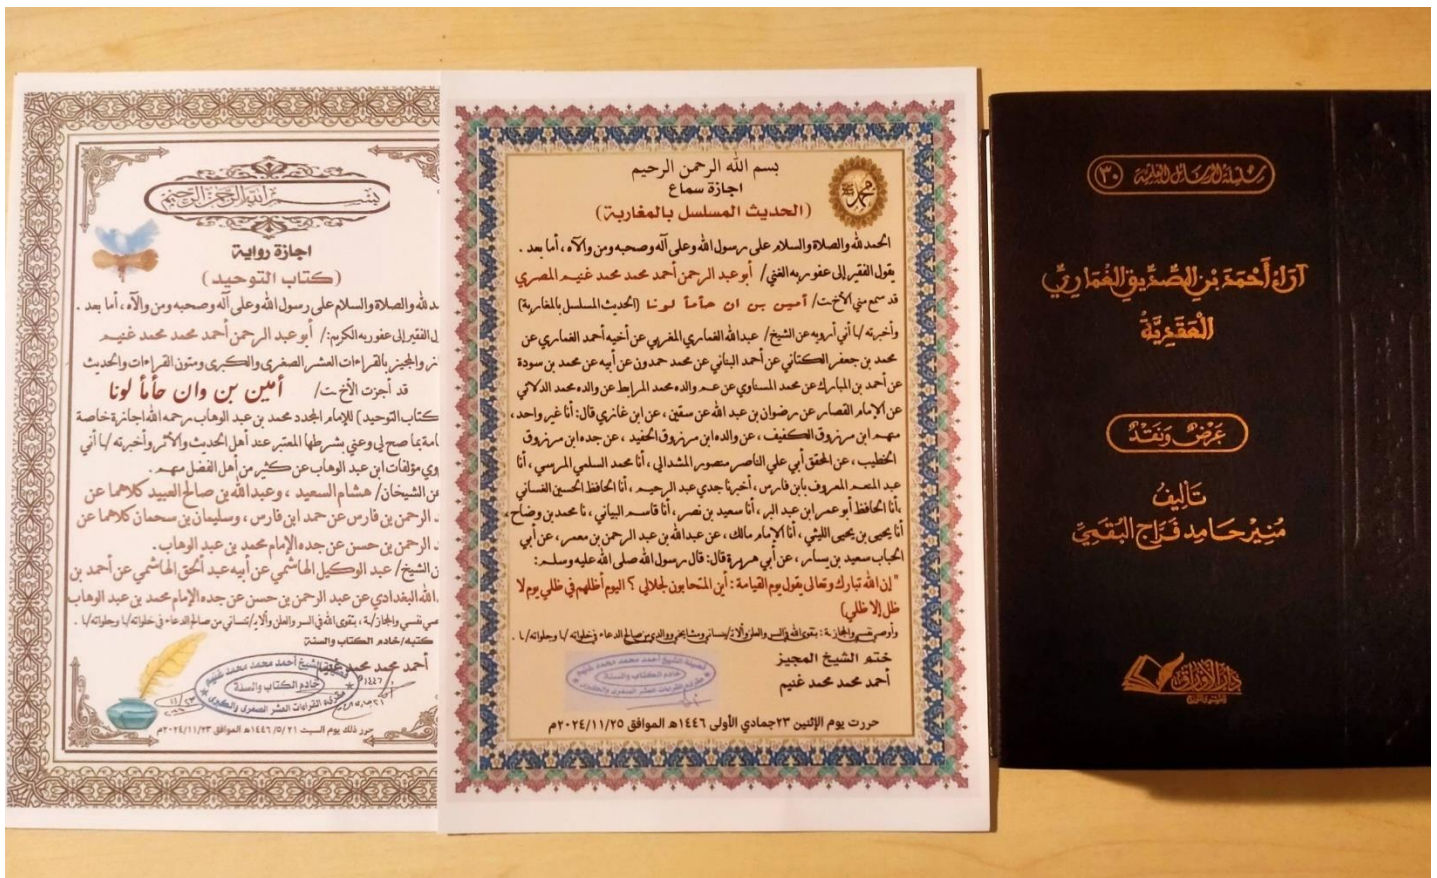 بسم الله الرحمن الرحيم
اجازة رواية
(كتاب التوحيد)
مد لله والصلاة والسلام على رسول الله وعلى آله وصحبه ومن والاه ، أما بعد .
ل الفقير إلى عفو ربه الكريم:/ أبو عبد الرحمن أحمد محمد محمد غنيم
ئر والمجيز بالقراءات العشر الصغرى والكبرى ومتون القراءات والحديث
قد أجزت الأخ ـت/ أمين بن وان حأمأ لونا
كتاب التوحيد) للإمام المجدد محمد بن عبد الوهاب رحمه الله اجازة خاصة
امة بما صح لي وعني بشرطها المعتبر عند أهل الحديث والأثر وأخبرته /ـا أني
روي مؤلفات ابن عبد الوهاب عن كثير من أهل الفضل منهم .
عن الشيخان/ هشام السعيد ، وعبد الله بن صالح العبيد كلاهما عن
د الرحمن بن فارس عن حمد ابن فارس ، وسليمان بن سحمان كلاهما عن
د الرحمن بن حسن عن جده الإمام محمد بن عبد الوهاب.
ن الشيخ/ عبد الوكيل الهاشمي عن أبيه عبد الحق الهاشمي عن أحمد بن
الله البغدادي عن عبد الرحمن بن حسن عن جده الإمام محمد بن عبد الوهاب
صي نفسي والمجاز/ـة ، بتقوى الله في السر والعلن وألا ي/تنساني من صالح الدعاء في خلواته/ـا وجلواته/ـا
كتبه/خادم الكتاب والسنة
أحمد محمد محمد غنيم
فضيلة الشيخ أحمد محمد محمد غنيم
خادم الكتاب والسنة
مقرئ القراءات العشر الصغرى والكبرى
حرر ذلك يوم السبت ١٤٤٦/٥/٢١هـ الموافق ٢٠٢٤/١١/٢٣م
محمد ﷺ
بسم الله الرحمن الرحيم
اجازة سماع
(الحديث المسلسل بالمغاربة)
الحمد لله والصلاة والسلام على رسول الله وعلى آله وصحبه ومن والاه ، أما بعد .
يقول الفقير إلى عفو ربه الغني/ أبو عبد الرحمن أحمد محمد محمد غنيم المصري
قد سمع مني الأخ ـت/ أمين بن ان حأمأ لونا (الحديث المسلسل بالمغاربة)
وأخبرته /ـا أني أرويه عن الشيخ/ عبد الله الغماري المغربي عن أخيه أحمد الغماري عن
محمد بن جعفر الكتاني عن أحمد البناني عن محمد حمدون عن أبيه عن محمد بن سودة
عن أحمد بن المبارك عن محمد المسناوي عن عم والده محمد المرابط عن والده محمد الدلائي
عن الإمام القصار عن رضوان بن عبد الله عن سقين ، عن ابن غازي قال: أنا غير واحد ،
منهم ابن مرزوق الكفيف ، عن والده ابن مرزوق الحفيد ، عن جده ابن مرزوق
الخطيب ، عن المحقق أبي علي الناصر منصور المشدالي ، أنا محمد السلمي المرسي ، أنا
عبد المنعم المعروف بابن فارس ، أخبرنا جدي عبد الرحيم ، أنا الحافظ الحسين الغساني
، أنا الحافظ أبو عمر ابن عبد البر ، أنا سعيد بن نصر ، أنا قاسم البياني ، نا محمد بن وضاح ،
أنا يحيى بن يحيى الليثي ، أنا الإمام مالك ، عن عبد الله بن عبد الرحمن بن معمر ، عن أبي
الحباب سعيد بن يسار ، عن أبي هريرة قال: قال رسول الله صلى الله عليه وسلم :
" إن الله تبارك وتعالى يقول يوم القيامة : أين المتحابون لجلالي ؟ اليوم أظلهم في ظلي يوم لا
ظل إلا ظلي)
وأوصي نفسي والمجاز/ـة : بتقوى الله في السر والعلن وألا ي/نساني ومشايخي ووالدي من صالح الدعاء في خلواته/ـا وجلواته/ـا .
ختم الشيخ المجيز
أحمد محمد محمد غنيم
فضيلة الشيخ أحمد محمد محمد غنيم
خادم الكتاب والسنة
مقرئ القراءات العشر الصغرى والكبرى
حررت يوم الإثنين ٢٣جمادي الأولى ١٤٤٦هـ الموافق ٢٠٢٤/١١/٢٥م
سلسلة الرسائل العلمية ٣٠
آراء أحمد بن الصديق الغماري
العقدية
عرض ونقد
تأليف
منير حامد فراج البقمي
دار الأوراق
للنشر والتوزيع